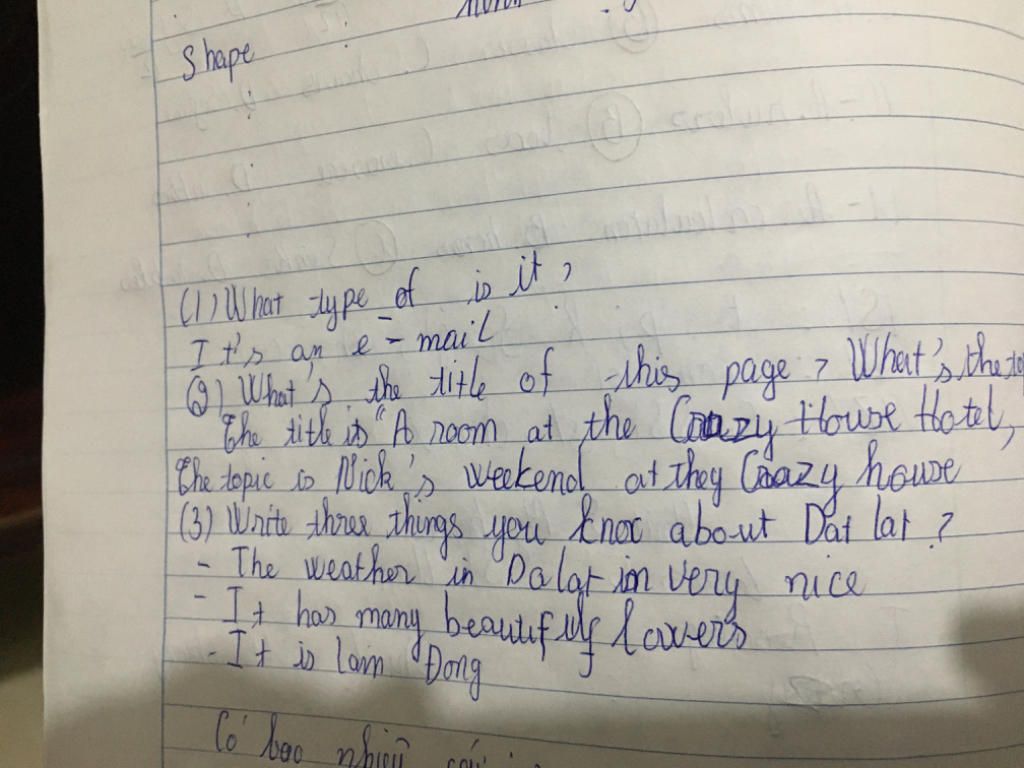 Shape
(1) What type of is it ?
It's an e-mail
(2) What's the title of this page ? What's the to
The title is "A room at the Craazy House Hotel,
The topic is Nick's weekend at they Craazy house
(3) Write three things you knoc about Dat lat ?
- The weather in Dalat in very nice
- It has many beautifuly
- It is lam Dong
Có bao nhiêu